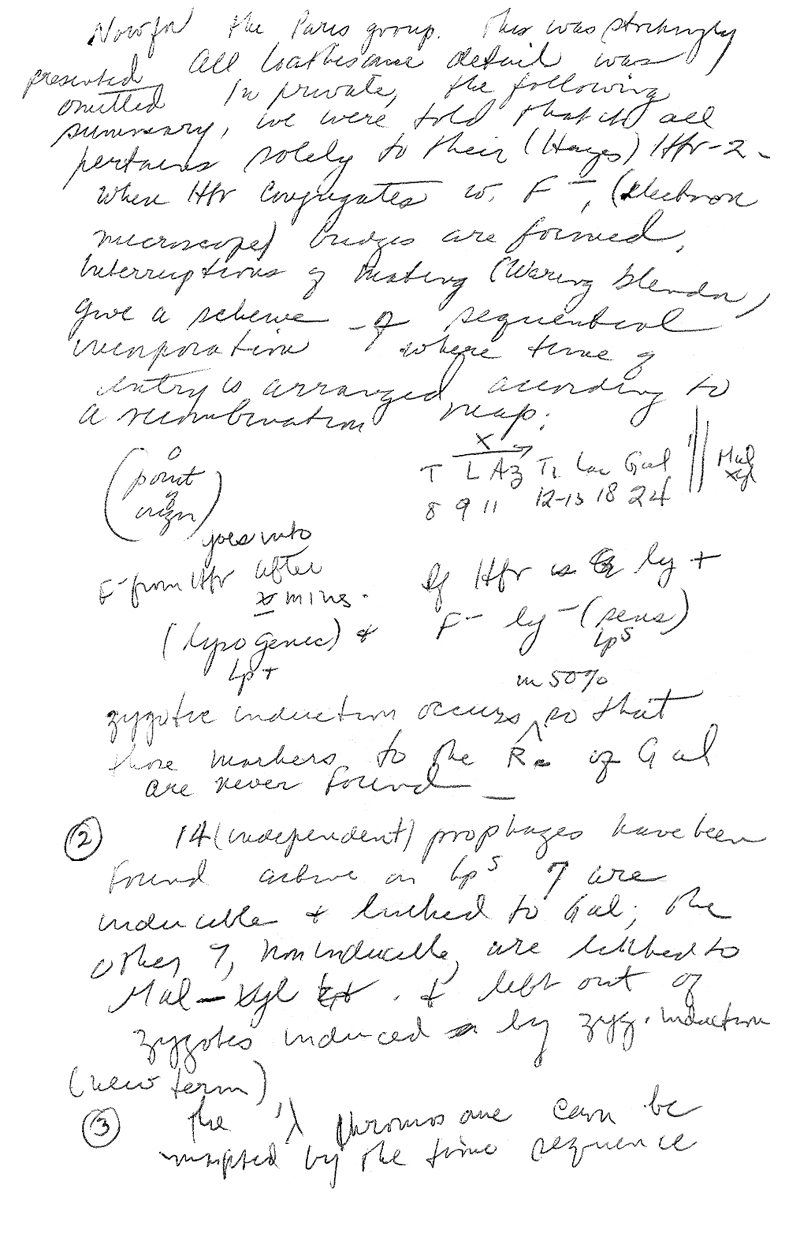 Now for the Paris group. This was strikingly
presented. All loathesome detail was
omitted In private, the following
summary, we were told that it all
pertains solely to their (Hayes) Hfr-2-
When Hfr conjugates w. F⁻, (electron
microscope) bridges are formed.
Interruptions of mating (Waring blendor)
give a scheme of sequential
incorporation where time of
entry is arranged according to
a recombination map:
X
O T L Az T₁ Lac Gal Mal
(point of origin) 8 9 11 12-13 18 24 xyl
goes into
F⁻ from Hfr after
x mins. If Hfr is ly +
(lysogenic) & F⁻ ly⁻ (sens)
Lp+ Lpˢ
in 50%
zygotic induction occurs, so that
those markers to the R. of Gal
are never found —
② 14 (independent) prophages have been
found active on Lpˢ 7 are
inducible & linked to Gal; the
other 7, noninducible, are linked to
Mal – Xyl . & left out of
zygotes induced by zyg. induction
(new term)
③ The λ chromosome can be
mapped by the time sequence